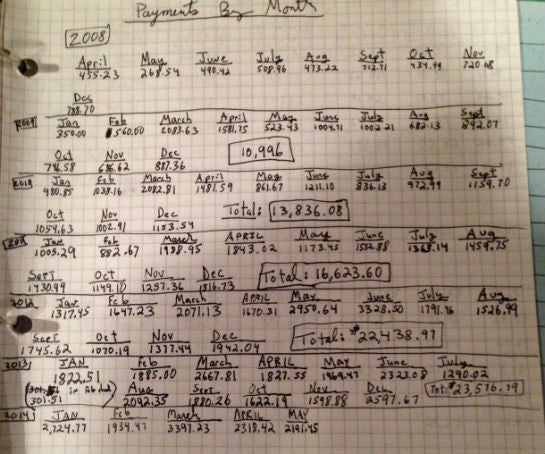 Payments By Month
2008
April May June July Aug Sept Oct Nov
455.23 268.54 490.42 508.96 473.22 712.71 434.49 720.08
Dec
788.70
2009 Jan Feb March April May June July Aug Sept
350.00 560.00 2083.63 1581.75 523.43 1004.71 1002.21 682.13 892.07
Oct Nov Dec 10,996
746.58 686.62 887.36
2010 Jan Feb March April May June July Aug Sept
980.85 1038.16 2082.81 1481.59 861.67 1211.10 836.13 972.99 1159.70
Oct Nov Dec Total: 13,836.08
1054.63 1002.91 1153.54
2011 Jan Feb March APRIL May June July Aug
1005.29 882.67 1998.95 1843.02 1173.45 1552.88 1368.14 1459.75
Sept Oct Nov Dec Total: 16,623.60
1430.99 1149.17 1257.36 1516.73
2012 Jan Feb March APRIL May June July Aug
1317.45 1647.23 2071.13 1670.31 2950.64 3328.50 1791.46 1526.89
Sept Oct Nov Dec Total: $22,438.97
1745.62 1070.19 1377.44 1942.04
2013 JAN Feb March APRIL MAY June July
1822.51 1885.00 2667.81 1827.55 1469.47 2323.08 1290.02
301.51 Aug Sept Oct Nov Dec Tot: $23,576.79
301.51 2092.35 1880.26 1622.19 1598.88 2597.67
2014 JAN Feb March APRIL MAY
2,724.77 1934.47 3397.23 2318.42 2191.45